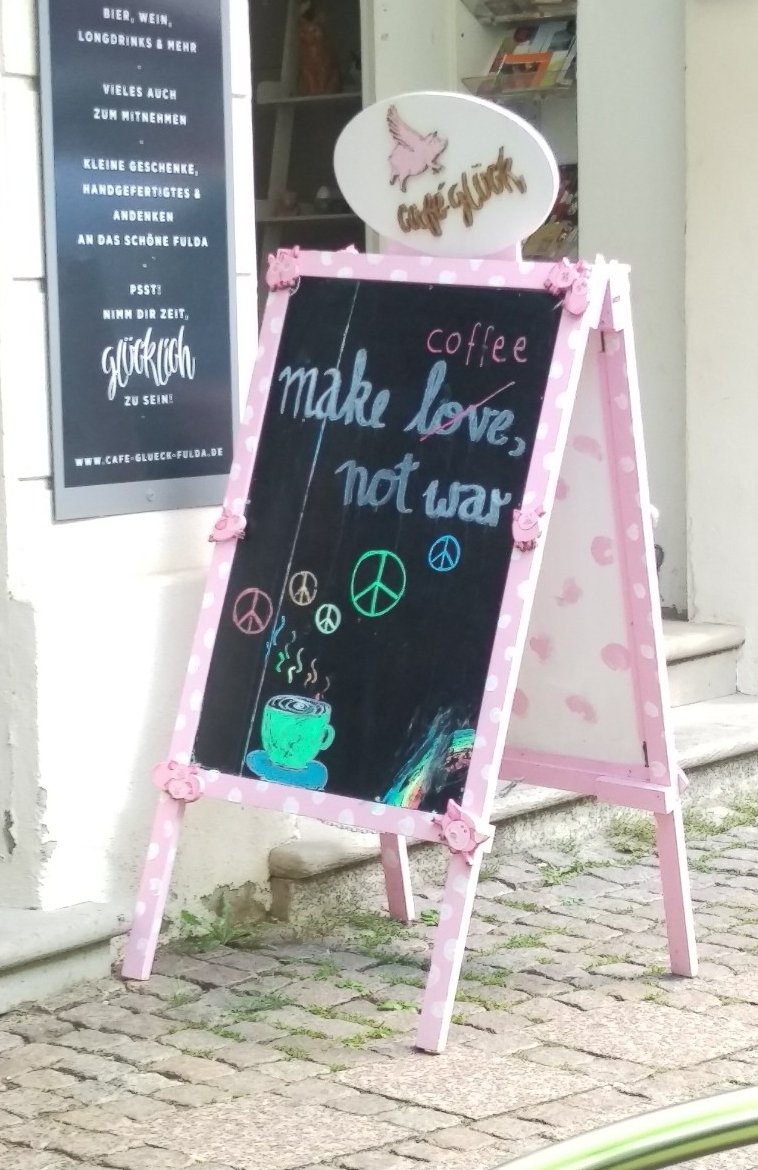 BIER, WEIN,
LONGDRINKS & MEHR
VIELES AUCH
ZUM MITNEHMEN
KLEINE GESCHENKE,
HANDGEFERTIGTES &
ANDENKEN
AN DAS SCHÖNE FULDA
PSST!
NIMM DIR ZEIT,
glücklich
ZU SEIN!
WWW.CAFE-GLUECK-FULDA.DE
café glück
coffee
make love,
not war